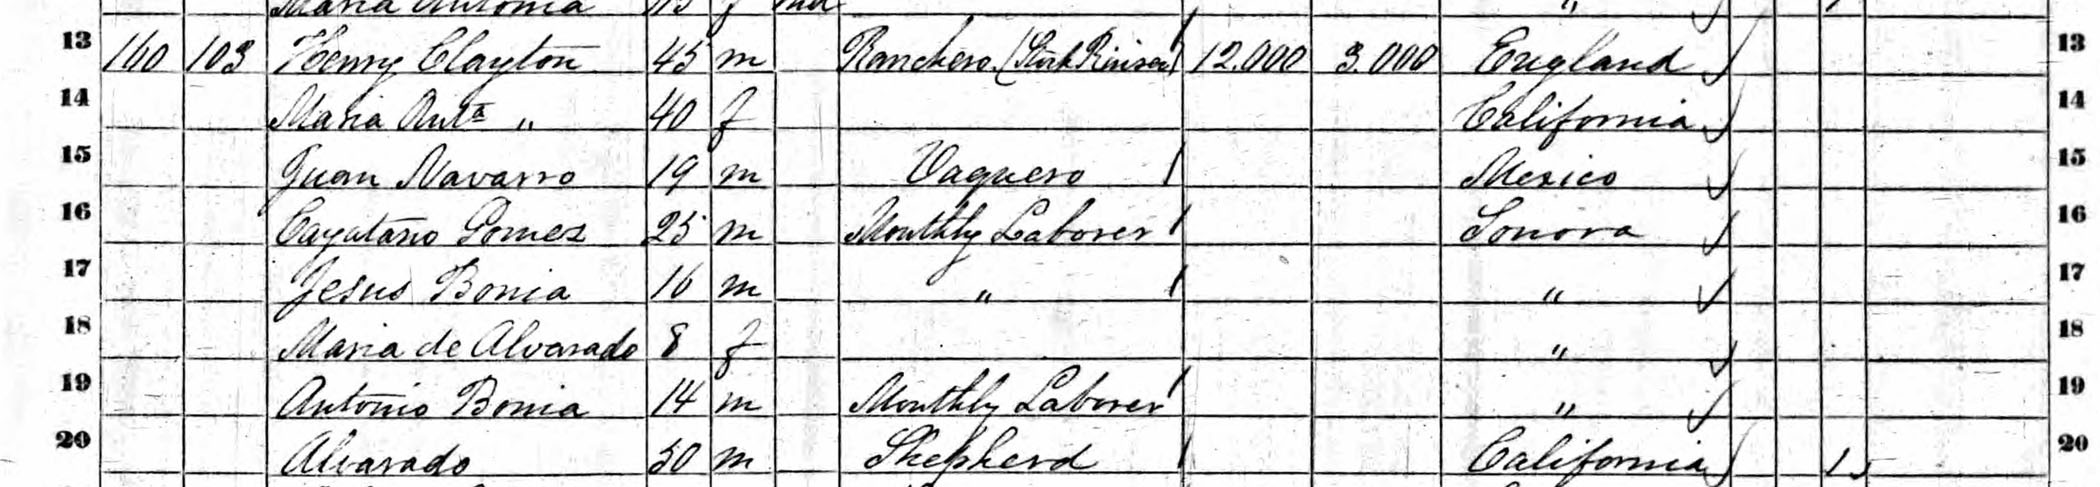 Maria Antonia f Ind "
13 160 103 Henry Clayton 45 m Ranchero (Stock Raiser) 12.000 3.000 England 13
14 Maria Anta " 40 f California 14
15 Juan Navarro 19 m Vaquero 1 Mexico 15
16 Cayatano Gomez 25 m Monthly Laborer 1 Sonora 16
17 Jesus Bonia 16 m " 1 " 17
18 Maria de Alvarado 8 f " 18
19 Antonio Bonia 14 m Monthly Laborer 1 " 19
20 Alvarado 50 m Shepherd 1 California 1 20